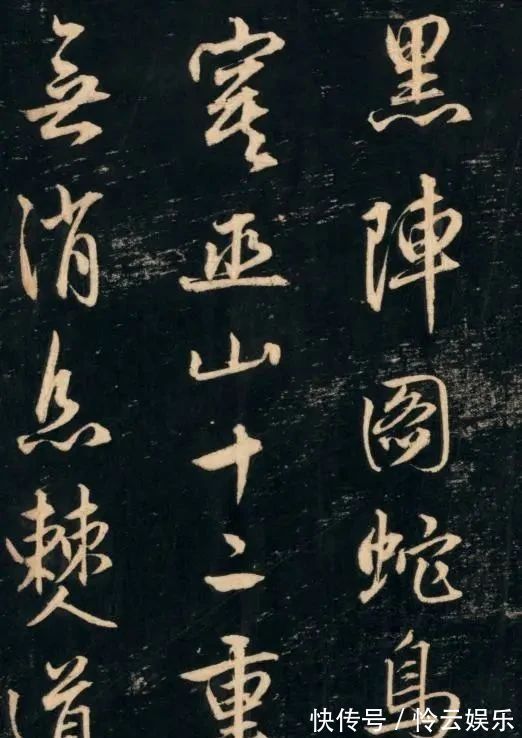 黑陣圖蛇鳥
寒巫山十二重
無消息僰道
快传号 / 怜云娱乐